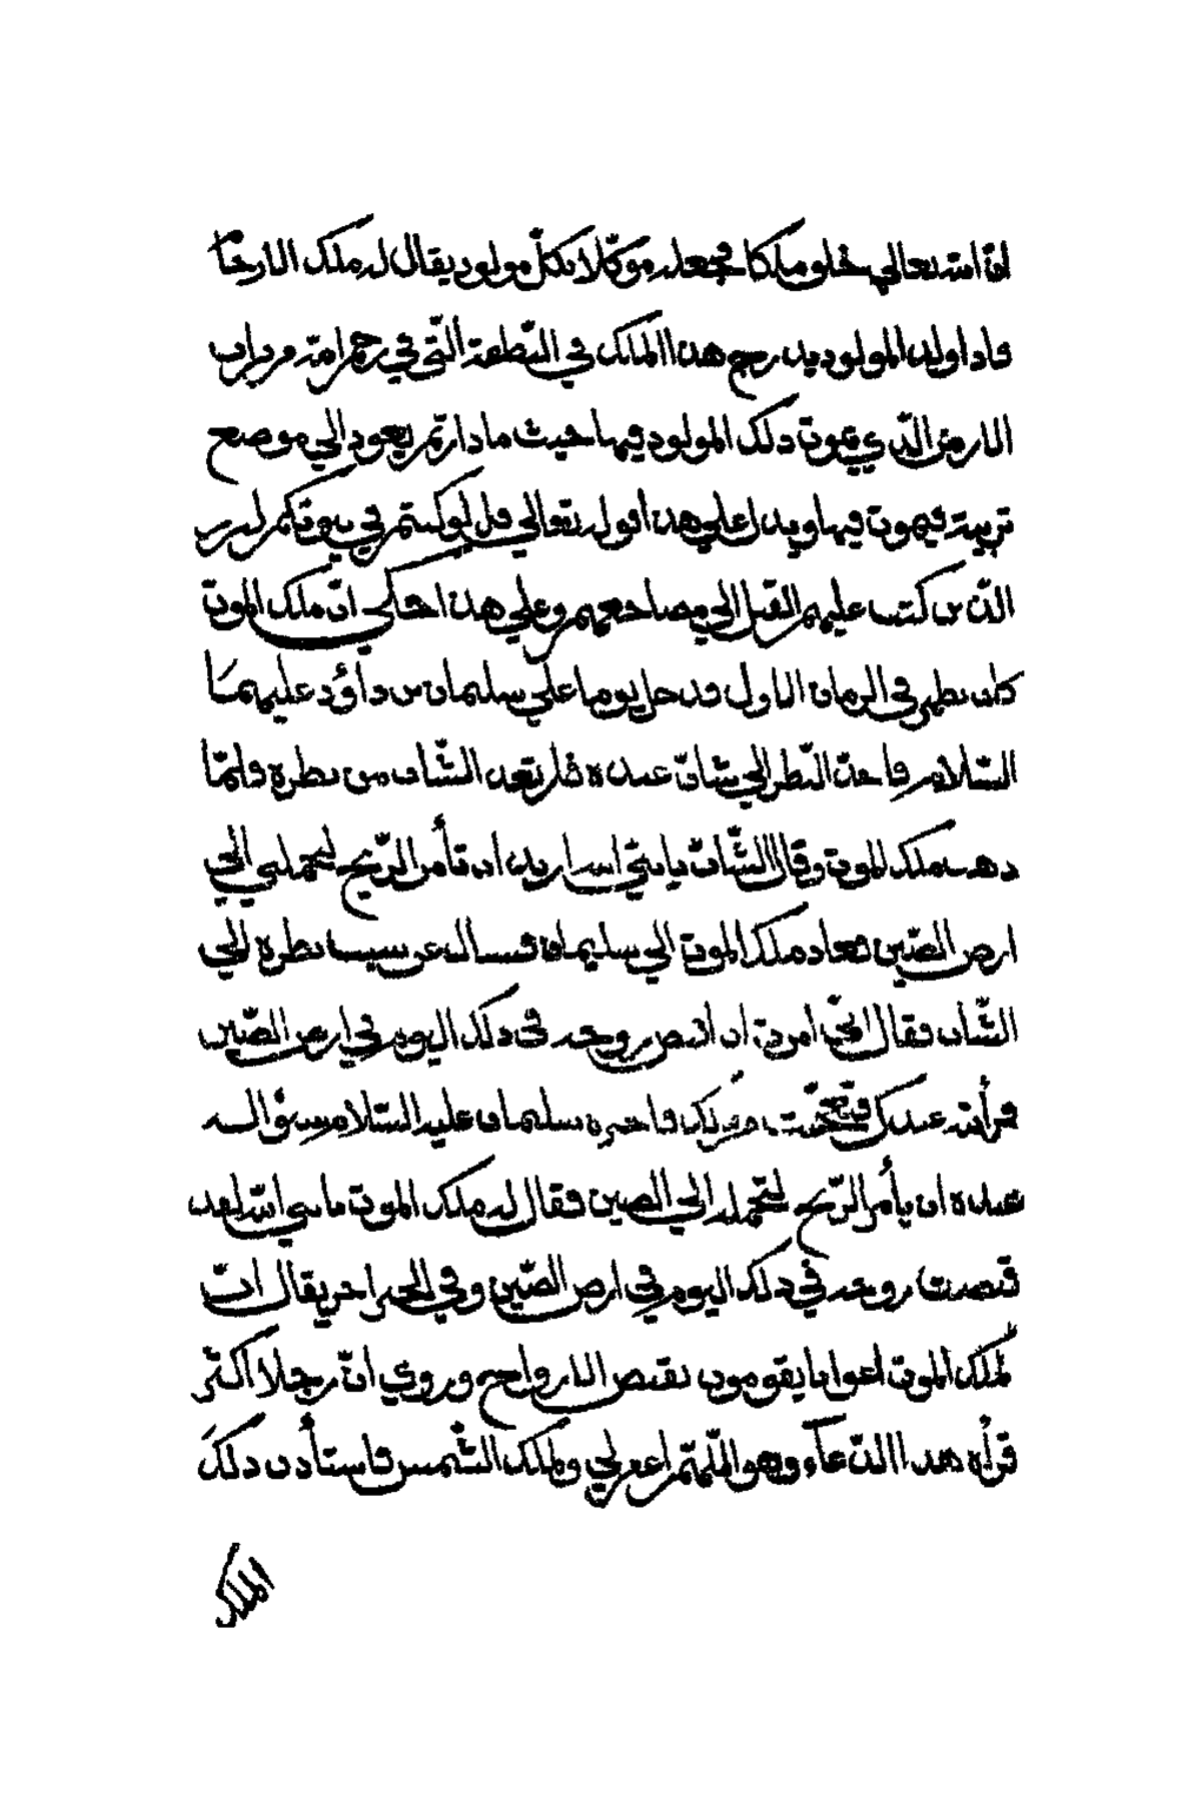 ان الله تعالى خلق ملكا فجعله موكّلا بكلّ مولود يقال له ملك الارحام
فاذا ولد المولود يدرج هذا الملك في النّطفة الّتي في رحم امّه من تراب
الارض الّذي يموت ذلك المولود فيها حيث ما دار ثمّ يعود الي موضع
تربته فيموت فيها ويدل علي هذا قوله تعالي قل لو كنتم في بيوتكم لبرز
الذين كتب عليهم القتل الي مضاجعهم وعلي هذا احكي انّ ملك الموت
كان يظهر في الزمان الاول فدخل يوما علي سليمان بن داؤد عليهما
السّلام فاحدّ النّظر الي شابّ عنده فارتعد الشّاب من نظره فلمّا
ذهب ملك الموت وقال الشّاب يا نبيّ الله اريد ان تأمر الرّيح لتحملني الي
ارض الصّين فعاد ملك الموت الي سليمان فساله عن سبب نظره الي
الشّاب فقال انّي امرت ان اقبض روحه في ذلك اليوم في ارض الصّين
فرأيته عندك فتعجّبت من ذلك فاخبره سليمان عليه السّلام بسؤاله
عنده ان يأمر الرّيح لتحمله الي الصين فقال له ملك الموت يا نبي الله لقد
قبضت روحه في ذلك اليوم في ارض الصّين وفي الخبر اخر يقال انّ
لملك الموت اعوانا يقومون بقبض الارواح وروي انّ رجلا اكثر
قرأه هذا الدّعآء وهو اللّهمّ اغفر لي ولملك الشّمس فاستأذن ذلك
الملك